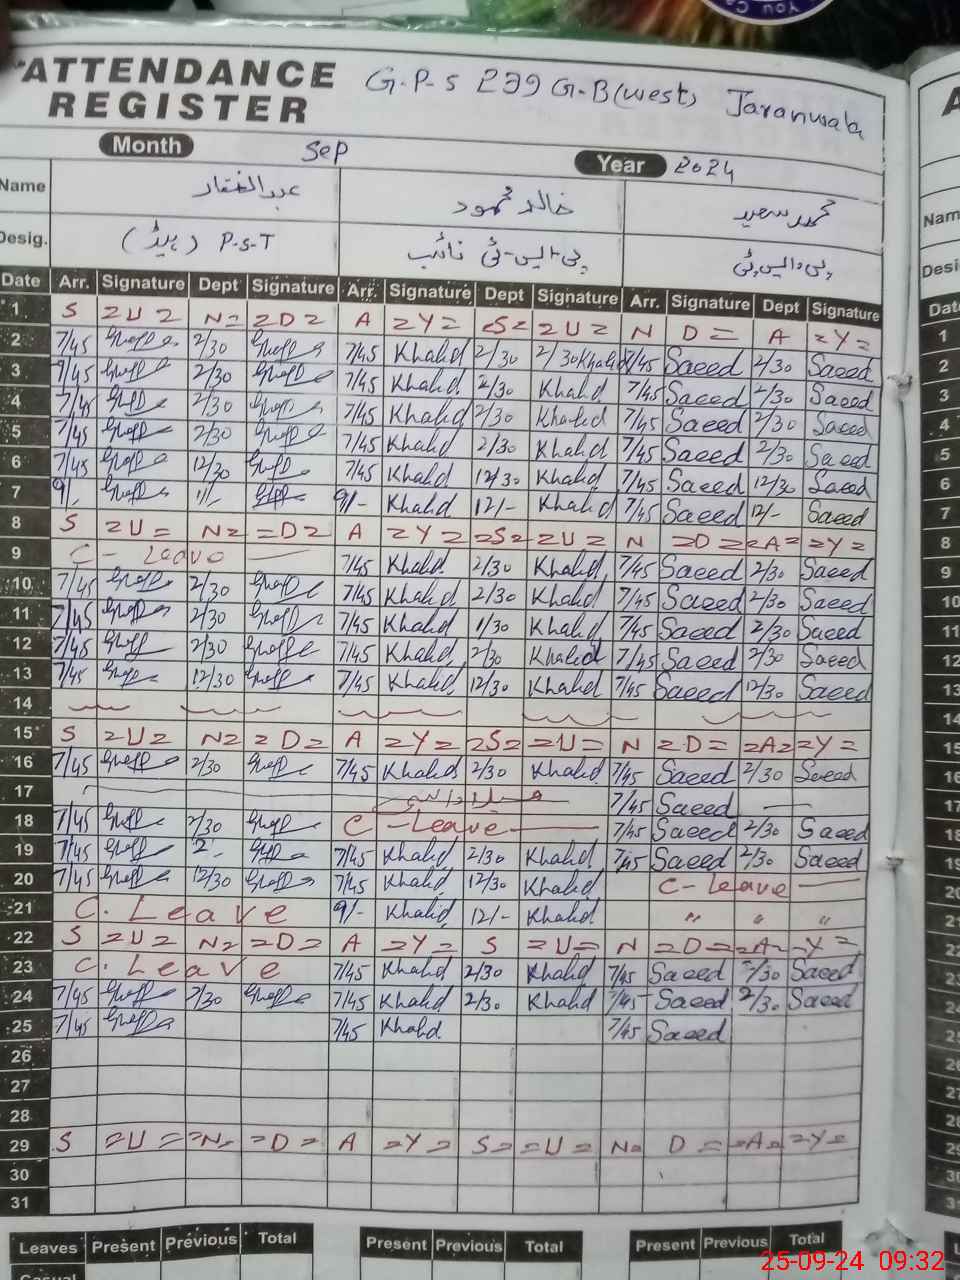 You Ca
ATTENDANCE REGISTER
G.P.S 239 G.B (west) Jaranwala
Month Sep Year 2024
Name عبدالغفار خالد محمود محمد سعید
Desig. P.S.T (ہیڈ) پی-ایس-ٹی نائب پی-ایس-ٹی
Date Arr. Signature Dept Signature Arr. Signature Dept Signature Arr. Signature Dept Signature
1 S =U= N= =D= A =Y= =S= =U= N D= A =Y=
2 7/45 2/30 7/45 Khalid 2/30 2/30 Khalid 7/45 Saeed 2/30 Saeed
3 7/45 2/30 7/45 Khalid 2/30 Khalid 7/45 Saeed 2/30 Saeed
4 7/45 2/30 7/45 Khalid 2/30 Khalid 7/45 Saeed 2/30 Saeed
5 7/45 2/30 7/45 Khalid 2/30 Khalid 7/45 Saeed 2/30 Saeed
6 7/45 12/30 7/45 Khalid 12/30 Khalid 7/45 Saeed 12/30 Saeed
7 9/- 9/- Khalid 12/- Khalid 7/45 Saeed 12/- Saeed
8 S =U= N= =D= A =Y= =S= =U= N =D= =A= =Y=
9 C - Leave 7/45 Khalid 2/30 Khalid 7/45 Saeed 2/30 Saeed
10 7/45 2/30 7/45 Khalid 2/30 Khalid 7/45 Saeed 2/30 Saeed
11 7/45 2/30 7/45 Khalid 1/30 Khalid 7/45 Saeed 2/30 Saeed
12 7/45 2/30 7/45 Khalid 2/30 Khalid 7/45 Saeed 2/30 Saeed
13 7/45 12/30 7/45 Khalid 12/30 Khalid 7/45 Saeed 12/30 Saeed
14
15 S =U= N= =D= A =Y= =S= =U= N =D= =A= =Y=
16 7/45 2/30 7/45 Khalid 2/30 Khalid 7/45 Saeed 2/30 Saeed
17 7/45 Saeed —
18 7/45 2/30 C - Leave 7/45 Saeed 2/30 Saeed
19 7/45 7/45 Khalid 2/30 Khalid 7/45 Saeed 2/30 Saeed
20 7/45 12/30 7/45 Khalid 12/30 Khalid C - leave
21 C. Leave 9/- Khalid 12/- Khalid " " "
22 S =U= N= =D= A =Y= S =U= N =D= =A= =Y=
23 C. Leave 7/45 Khalid 2/30 Khalid 7/45 Saeed 2/30 Saeed
24 7/45 2/30 7/45 Khalid 2/30 Khalid 7/45 Saeed 2/30 Saeed
25 7/45 7/45 Khalid 7/45 Saeed
26
27
28
29 S =U= =N= =D= A =Y= S= =U= N= D= =A= =Y=
30
31
Leaves Present Previous Total Present Previous Total Present Previous Total
Casual
25-09-24 09:32